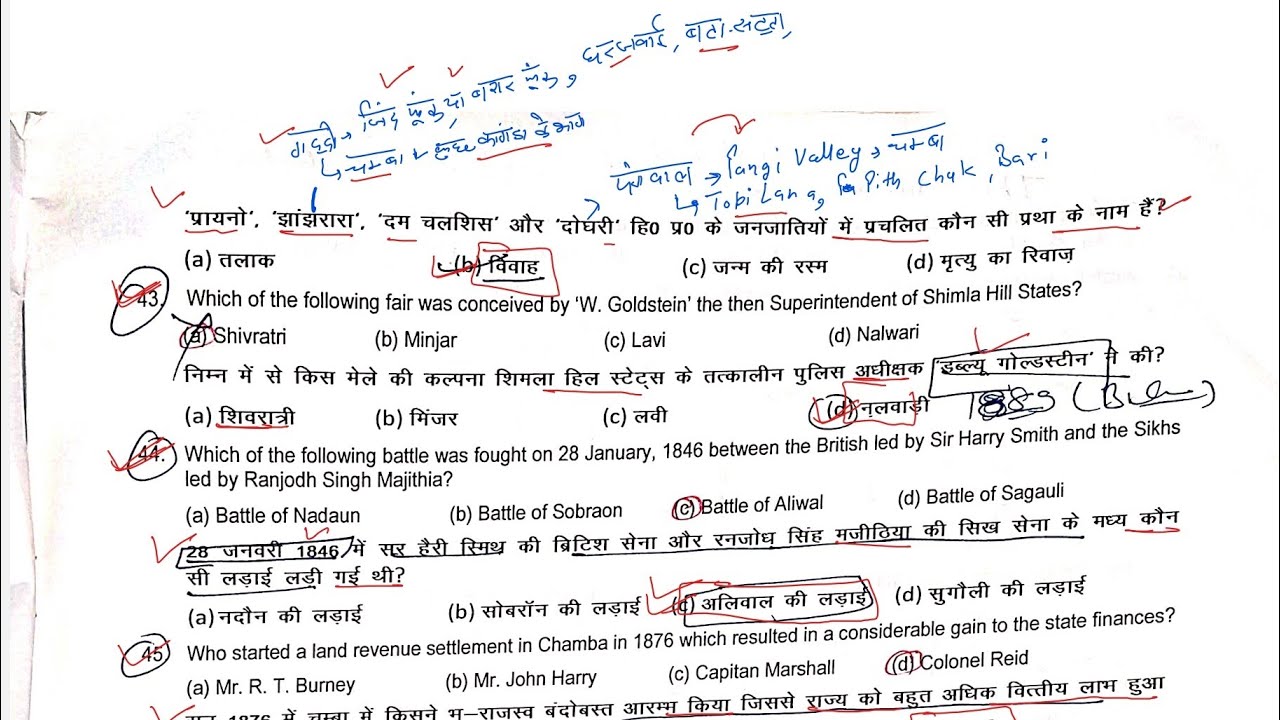 घरजवांई, बाटा-सटटा,
गददी → जिंद फूंक, या बरार फूंक,
↳ चम्बा व कुछ कांगडा के भाग
पंगवाल → Pangi Valley → चम्बा
↳ Topi Lana, Pith Chuk, Bari
'प्रायनो', 'झांझरारा', 'दम चलशिस' और 'दोघरी' हि0 प्र0 के जनजातियों में प्रचलित कौन सी प्रथा के नाम हैं?
(a) तलाक (b) विवाह (c) जन्म की रस्म (d) मृत्यु का रिवाज़
43. Which of the following fair was conceived by 'W. Goldstein' the then Superintendent of Shimla Hill States?
(a) Shivratri (b) Minjar (c) Lavi (d) Nalwari
निम्न में से किस मेले की कल्पना शिमला हिल स्टेट्स के तत्कालीन पुलिस अधीक्षक 'डब्ल्यू गोल्डस्टीन' ने की?
(a) शिवरात्री (b) मिंजर (c) लवी (d) नलवाड़ी 1889
44. Which of the following battle was fought on 28 January, 1846 between the British led by Sir Harry Smith and the Sikhs
led by Ranjodh Singh Majithia?
(a) Battle of Nadaun (b) Battle of Sobraon (c) Battle of Aliwal (d) Battle of Sagauli
28 जनवरी 1846 में सर हैरी स्मिथ की ब्रिटिश सेना और रनजोध सिंह मजीठिया की सिख सेना के मध्य कौन
सी लड़ाई लड़ी गई थी?
(a) नदौन की लड़ाई (b) सोबरॉन की लड़ाई (c) अलिवाल की लड़ाई (d) सुगौली की लड़ाई
45 Who started a land revenue settlement in Chamba in 1876 which resulted in a considerable gain to the state finances?
(a) Mr. R. T. Burney (b) Mr. John Harry (c) Capitan Marshall (d) Colonel Reid
सन् 1876 में चम्बा में किसने भू-राजस्व बंदोबस्त आरम्भ किया जिससे राज्य को बहुत अधिक वित्तीय लाभ हुआ